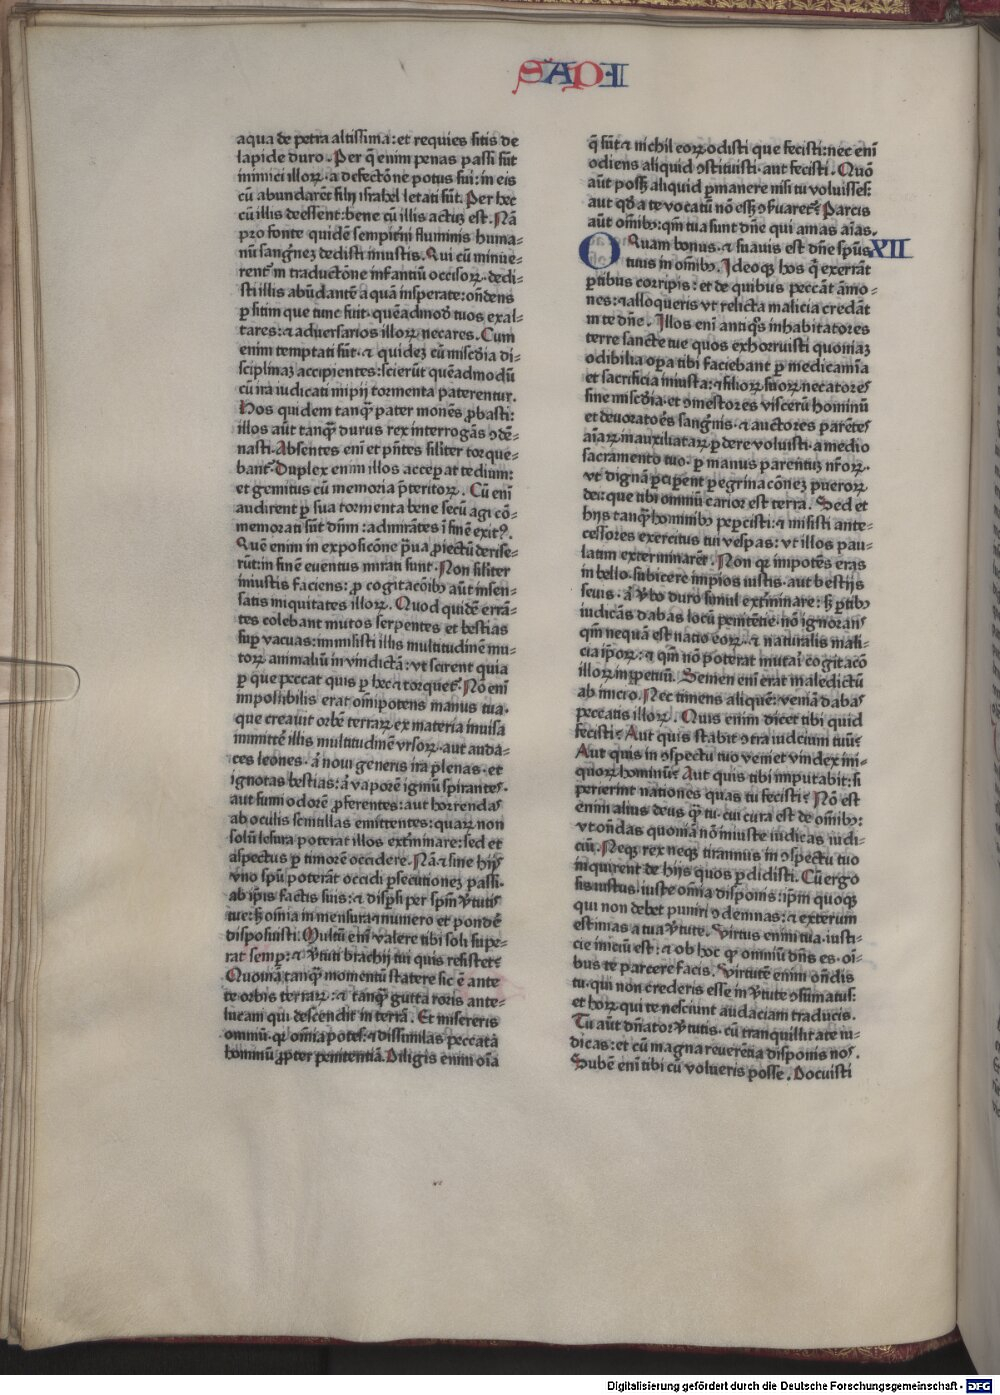 SAP·II
aqua de petra altissima: et requies sitis de
lapide duro. Per q̄ enim penas passi sūt
inimici illoꝝ. a defectōne potus sui: in eis
cū abundarēt filij israhel letati sūt. Per hec
cū illis deessent: bene cū illis actū est. Nā
pro fonte quidē sempit'ni fluminis huma-
nū sang'nez dedisti iniustis. Qui cū minue-
rent' in traductōne infantiū occisoꝝ. dedi-
sti illis abūdantē aquā insperate: on̄dens
ꝑ sitim que tunc fuit. quēadmod̄ tuos exal-
tares: ⁊ aduersarios illoꝝ necares. Cum
enim temptati sūt. ⁊ quidez cū mis̄cdia di-
sciplinaz accipientes: scierūt quēadmodū
cū ira iudicati impij tormenta paterentur.
Hos quidem tanq̄ʒ pater monēs ꝓbasti:
illos aūt tanq̄ʒ durus rex interrogās ↄdē-
nasti. Absentes enī et pn̄tes siliter torque-
bant'. Duplex enim illos acceperat tedium:
et gemitus cū memoria p̄teritoꝝ. Cū enī
audirent ꝑ sua tormenta bene secū agi cō-
memorati sūt dn̄m: admirātes ī finē exit⁹.
Quē enim in exposicōne p̄ua ꝓiectū derise-
rūt: in finē euentus mirati sunt. Non siliter
iniustis faciens: ꝓ cogitacōibꝫ aūt insen-
satis iniquitates illoꝝ. Quod quidē errā-
tes colebant mutos serpentes et bestias
suꝑ vacuas: immisisti illis multitudinē mu-
toꝝ animaliū in vindictā: vt scirent quia
ꝑ que peccat quis ꝑ hec ⁊ torquet'. Nō enī
impossibilis erat om̄ipotens manus tua.
que creauit orbē terraꝝ ex materia inuisa
immittē illis multitudinē vrsoꝝ. aut auda-
ces leones. a' noui generis ira plenas. et
ignotas bestias: a' vaporē igniū spirantes.
aut fumi odorē ꝓferentes: aut horrendas
ab oculis scintillas emittentes: quaꝝ non
solū lesura poterat illos ext'minare: sed et
aspectus ꝑ timorē occidere. Nā ⁊ sine hijs
vno spū poterāt occidi ꝑsecutionez passi.
ab ip̄is factis suis: ⁊ disꝑsi per spm̄ v'tutis
tue: sꝫ om̄ia in mensura ⁊ numero et pondē
disposuisti. Multū enī valere tibi soli supe-
rat semp: ⁊ v'tuti brachij tui quis resistet?
Quoniā tanq̄ʒ momentū statere sic ē ante
te orbis terraꝝ: ⁊ tanq̄ʒ gutta roris ante-
lucani qui descendit in terrā. Et misereris
omniū. qꝛ om̄ia potes: ⁊ dissimilas peccata
hominū ꝓpter penitentiā. Diligis enim oīa
q̄ sūt ⁊ nichil eoꝝ odisti que fecisti: nec enī
odiens aliquid ↄstituisti. aut fecisti. Quō
aūt possꝫ aliquid ꝑmanere nisi tu voluisses:
aut qd̄ a te vocatū nō essꝫ ↄseruaret'? Parcis
aūt om̄ibꝫ: qm̄ tua sunt dn̄e qui amas aīas.
O Quam bonus. ⁊ suauis est dn̄e spūs XII
tuus in om̄ibꝫ. Ideoqꝫ hos q̄ exerrāt
ꝑtibus corripis: et de quibus peccāt āmo-
nes: ⁊ alloqueris vt relicta malicia credāt
in te dn̄e. Illos enī antiq̄s inhabitatores
terre sancte tue quos exhorruisti quoniaz
odibilia oꝑa tibi faciebant ꝑ medicamīa
et sacrificia iniusta: ⁊ filioꝝ suoꝝ necatores
sine mis̄cdia. et ↄmestores visceru hominū
et deuoratoēs sang'nis. ⁊ auctores parētes
aīaꝝ inauxiliataꝝ ꝑdere voluisti. a medio
sacramento tuo. ꝑ manus parentuꝫ nr̄oꝝ.
vt dignā ꝑciꝑent ꝑegrinacōnez pueroꝝ
dei: que tibi omniū carior est terra. Sed et
hijs tanq̄ʒ hominibꝫ peꝑcisti: ⁊ misisti ante-
cessores exercitus tui vespas: vt illos pau-
latim exterminarēt. Non qꝛ impotēs eras
in bello subicere impios iustis. aut bestijs
seuis. a' v'bo duro simul ext'minare: sꝫ ꝑtibꝫ
iudicās dabas locū penitētie. nō ignorans
qm̄ nequā est natio eoꝝ. ⁊ naturalis mali-
cia ip̄oꝝ: ⁊ qm̄ nō poterat mutai' cogitacō
illoꝝ in ꝑpetuū. Semen enī erat maledictū
ab inicio. Nec timens aliquē: veniā dabas
peccatis illoꝝ. Quis enim dicet tibi quid
fecisti? Aut quis stabit ↄtra iudcium tuū?
Aut quis in ↄspectu tuo veniet vindex ini-
quoꝝ hominū? Aut quis tibi imputabit: si
perierint nationes quas tu fecisti? Nō est
enim alius deus q̄ʒ tu. cui cura est de om̄ibꝫ:
vt on̄das quoniā nō iniuste iudicas iudi-
ciū. Neqꝫ rex neqꝫ tirannus in ↄspectu tuo
inquirent de hijs quos ꝑdidisti. Cū ergo
sis iustus: iuste om̄ia disponis: ip̄m quoqꝫ
qui non debet puniri ↄdemnas: ⁊ exterum
estimas a tua v'tute. Virtus enim tua. iusti-
cie iniciū est: ⁊ ob hoc qꝛ omniū dn̄s es. oī-
bus te parcere facis. Virtutē enim on̄dis
tu. qui non crederis esse in v'tute ↄsumatus:
et hoꝝ qui te nesciunt audaciam traducis.
Tu aūt dn̄ator v'tutis. cū tranquillitate iu-
dicas: et cū magna reuerētia disponis nos.
Subē enī tibi cū volueris posse. Docuisti
Digitalisierung gefördert durch die Deutsche Forschungsgemeinschaft - DFG